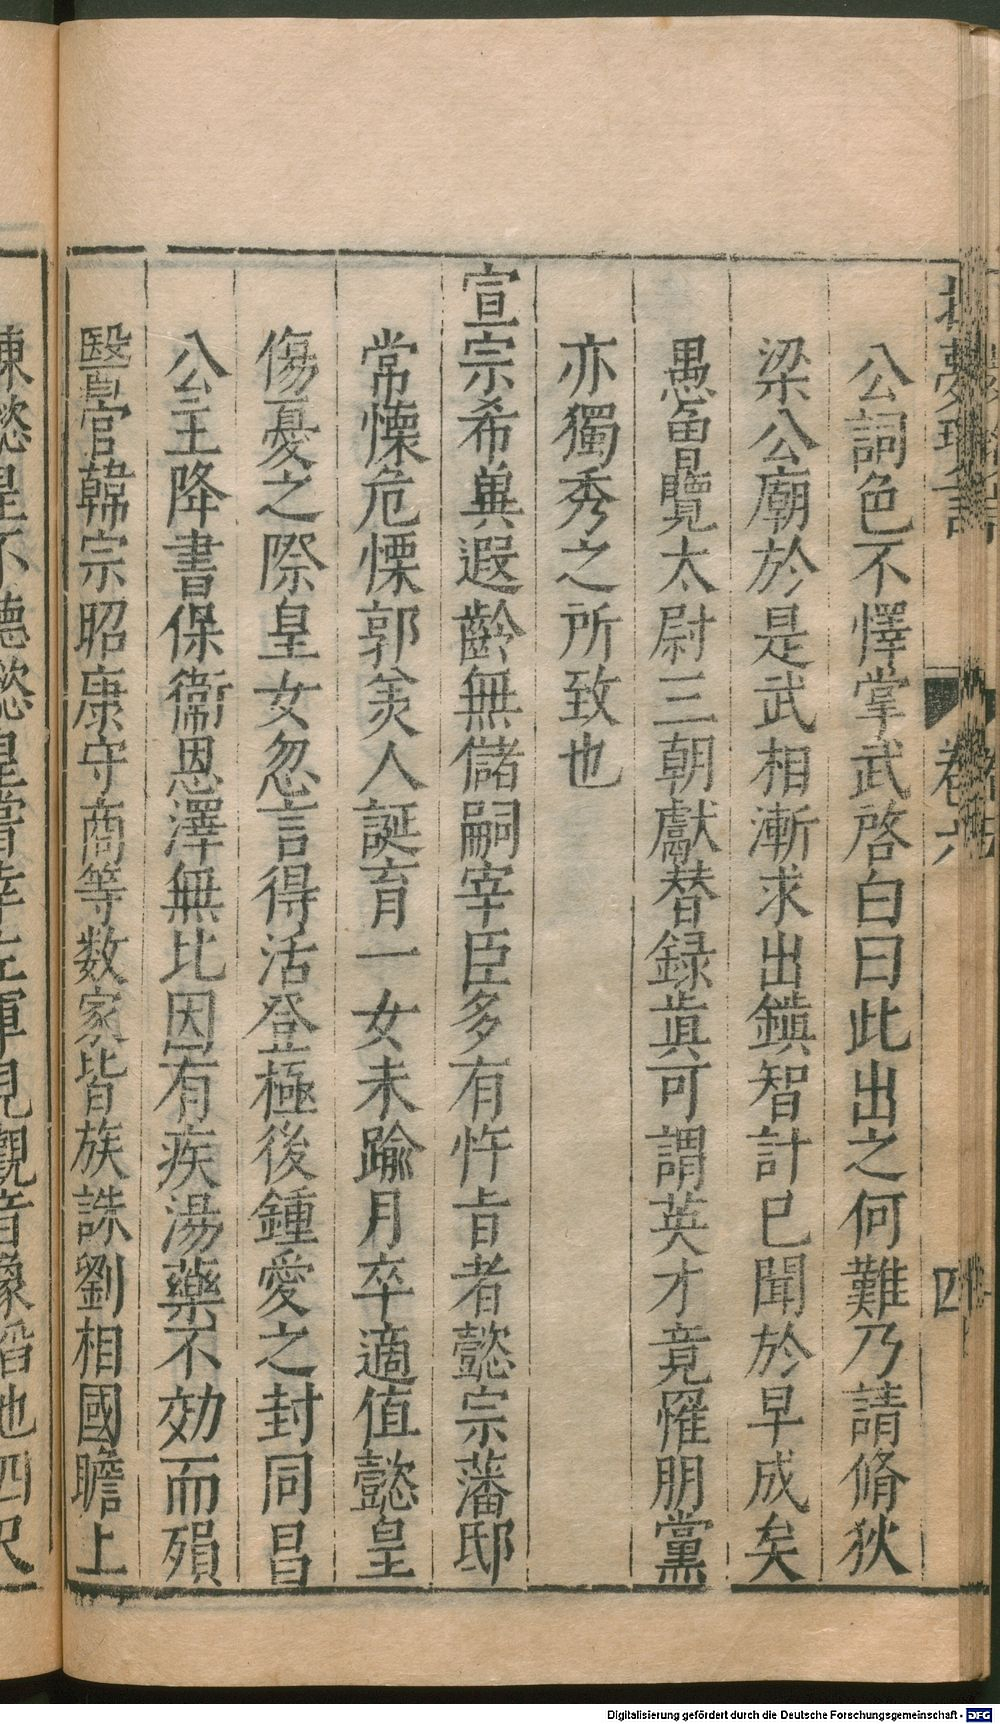 公詞色不懌掌武啓白曰此出之何難乃請脩狄
梁公廟於是武相漸求出鎮智計已聞於早成矣
愚曾覽太尉三朝獻替録真可謂英才竟罹朋黨
亦獨秀之所致也
宣宗希兾遐齡無儲嗣宰臣多有忤旨者懿宗藩邸
常懐危慄郭美人誕育一女未踰月卒適值懿皇
傷憂之際皇女忽言得活登極後鍾愛之封同昌
公主降書保衞恩澤無比因有疾湯藥不効而殞
醫官韓宗昭康守商等数家皆族誅劉相國瞻上
諫懿皇不聽懿皇嘗幸左軍見觀音像陷地四尺
卷六
四
Digitalisierung gefördert durch die Deutsche Forschungsgemeinschaft - DFG